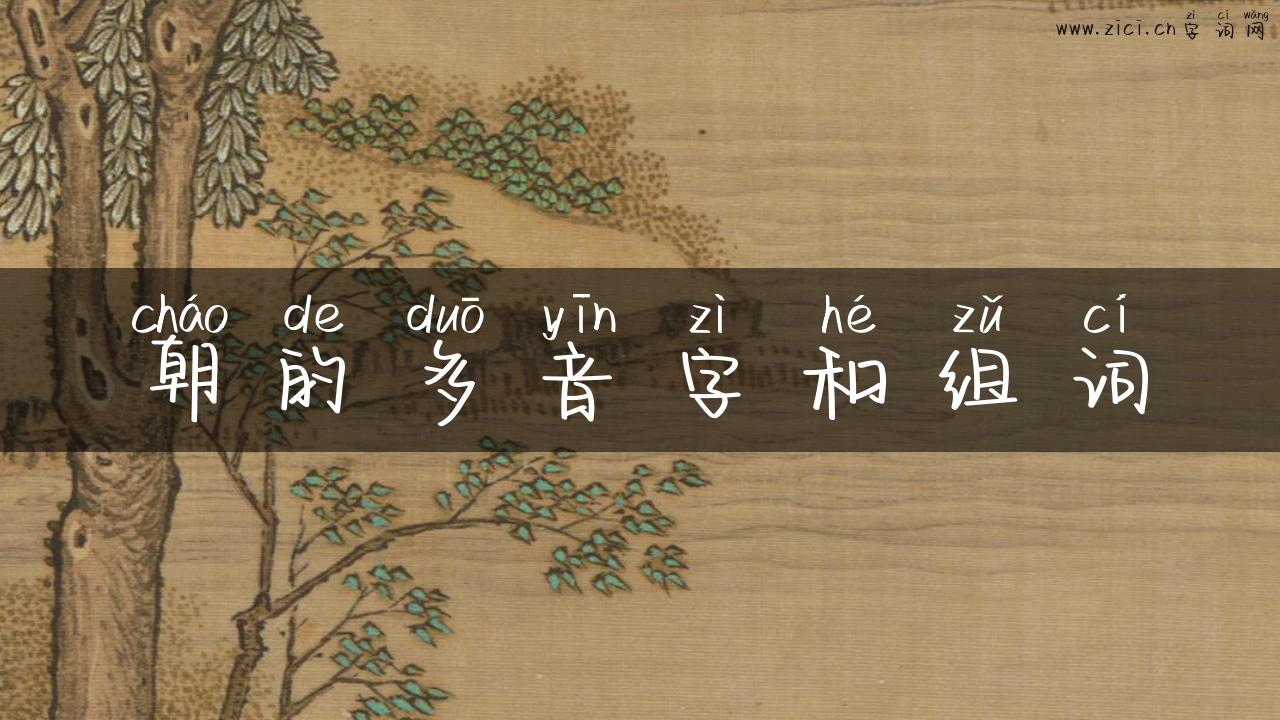 zì cí wǎng
www.zici.cn 字词网
cháo de duō yīn zì hé zǔ cí
朝的多音字和组词